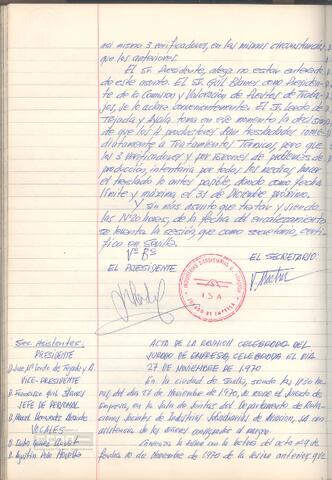 así mismo 3 verificadores, en las mismas circunstancias
que las anteriores.
El Sr. Presidente, alega no estar enterado
de este asunto. El Sr. Gil Blanes como Presiden-
te de la Comisión y Valoración de Puestos de Traba-
jos, se lo aclara convenientemente. El Sr. Lerdo de
Tejada y Ayala toma en este momento la decisión
de que los 4 productores sean trasladados inme-
diatamente a Tratamientos Térmicos, pero que
los 3 verificadores y por razones de problemas de
producción, intentaría por todos los medios, hacer
el traslado lo antes posible, dando como fecha
límite y máxima el 31 de Diciembre próximo.
Y sin más asunto que tratar y siendo
las 20 horas, de la fecha del encabezamiento
se levanta la sesión, que como secretario, certi-
fico en Sevilla.
Vº Bº
EL PRESIDENTE
EL SECRETARIO.
I S A
JURADO DE EMPRESA
Sres. Asistentes.
PRESIDENTE
VICE-PRESIDENTE
D. Francisco Gil Blanes
JEFE DE PERSONAL
D. Manuel
VOCALES
D. Agustín
ACTA DE LA REUNION CELEBRADA DEL
JURADO DE EMPRESA, CELEBRADA EL DIA
27 DE NOVIEMBRE DE 1970
En la ciudad de Sevilla, siendo las
horas del día 27 de Noviembre de 1970, se reune el Jurado de
Empresa, en la Sala de Juntas del Departamento de Rela-
ciones Sociales de Industrias Subsidiarias de Aviación, con
asistencia de los señores consignados al margen.
Comienza la sesión con la lectura del acta nº 9 de
fecha 10 de Noviembre de 1970 de la reunión anterior, que